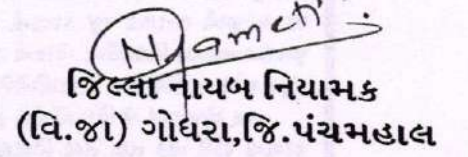 જિલ્લા નાયબ નિયામક
(વિ.જા) ગોધરા,જિ.પંચમહાલ